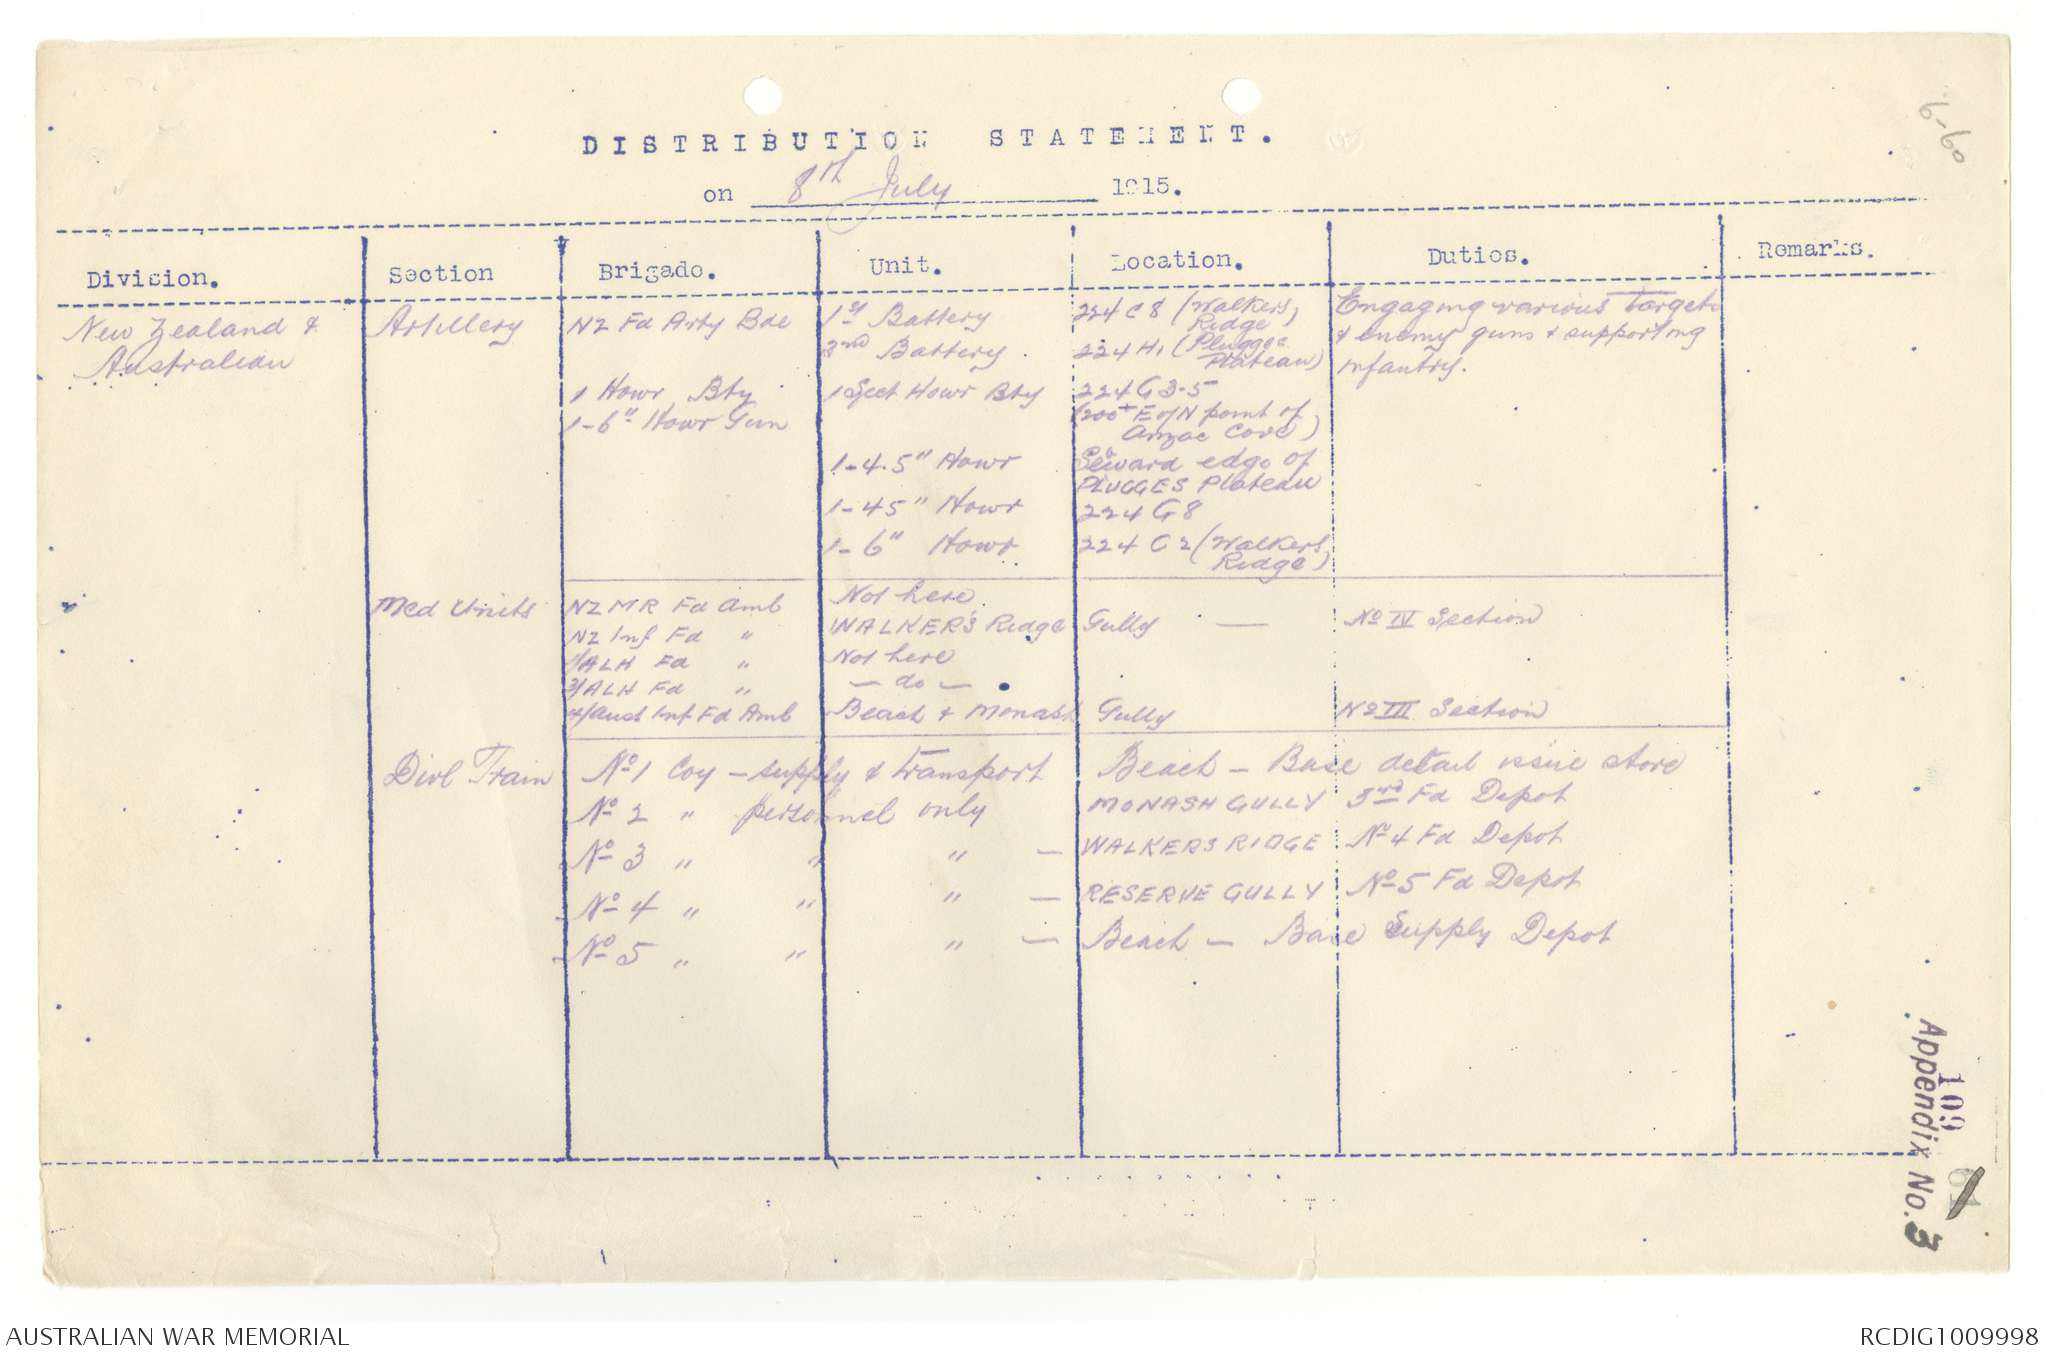 6-60
DISTRIBUTION STATEMENT.
on 8th July 1915.
Division. Section Brigade. Unit. Location. Duties. Remarks.
New Zealand & Artillery NZ Fd Arty Bde 1st Battery 224 C 8 (Walkers Ridge) Engaging various Targets
Australian 3rd Battery 224 H1 (Plugges Plateau) & enemy guns & supporting
infantry.
1 Howr Bty 1 Sect Howr Bty 224 G 3-5
1-6" Howr Gun (200x E of N point of
Anzac Cove)
1-4.5" Howr Seaward edge of
PLUGGES Plateau
1-45" Howr 224 G 8
1-6" Howr 224 C 2 (Walkers
Ridge)
Med Units NZ MR Fd Amb Not here
NZ Inf Fd " WALKER'S Ridge Gully — No IV Section
1/ALH Fd " Not here
3/ALH Fd " — do —
4/Aust Inf Fd Amb Beach & Monash Gully No III Section
Divl Train No 1 Coy - supply & transport Beach - Base detail issue store
No 2 " personnel only MONASH GULLY 3rd Fd Depot
No 3 " " " — WALKERS RIDGE No 4 Fd Depot
No 4 " " " — RESERVE GULLY No 5 Fd Depot
No 5 " " " — Beach - Base Supply Depot
109
Appendix No. 3
61
AUSTRALIAN WAR MEMORIAL
RCDIG1009998